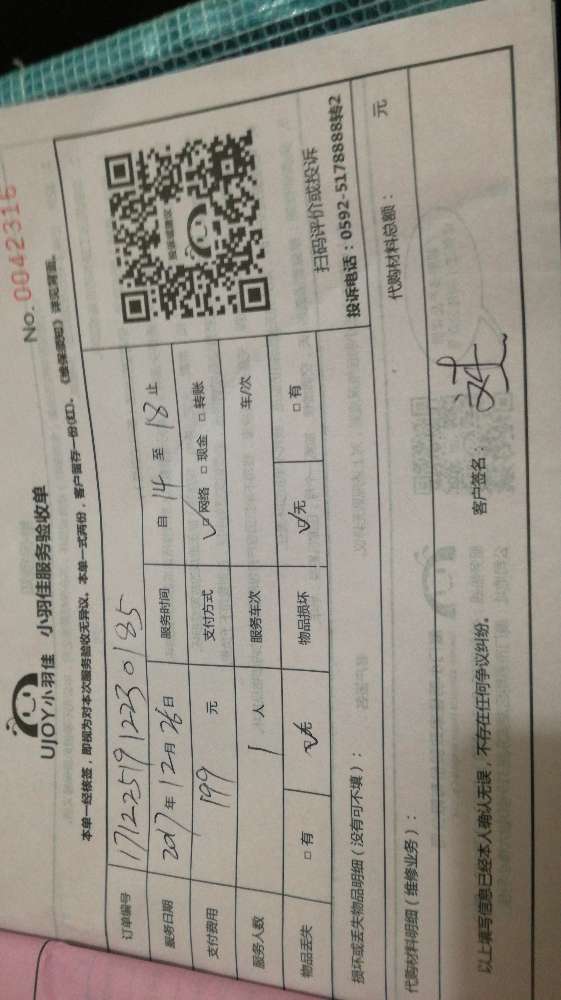 No. 0042316
UJOY小羽佳 小羽佳服务验收单
本单一经核签，即视为对本次服务验收无异议。本单一式两份，客户留存一份(红)。《维保须知》详见背面。
订单编号 171225912230185
服务日期 2017年12月26日 服务时间 自 14 至 18 止
支付费用 199 元 支付方式 ☑网络 □现金 □转账
服务人数 1 人 服务车次 车/次
物品丢失 □有 ☑无 物品损坏 ☑无 □有
投诉或建议
扫码评价或投诉
投诉电话：0592-5178888转2
损坏或丢失物品明细（没有可不填）：
代购材料明细（维修业务）： 代购材料总额： 元
以上填写信息已经本人确认无误，不存在任何争议纠纷。 客户签名：